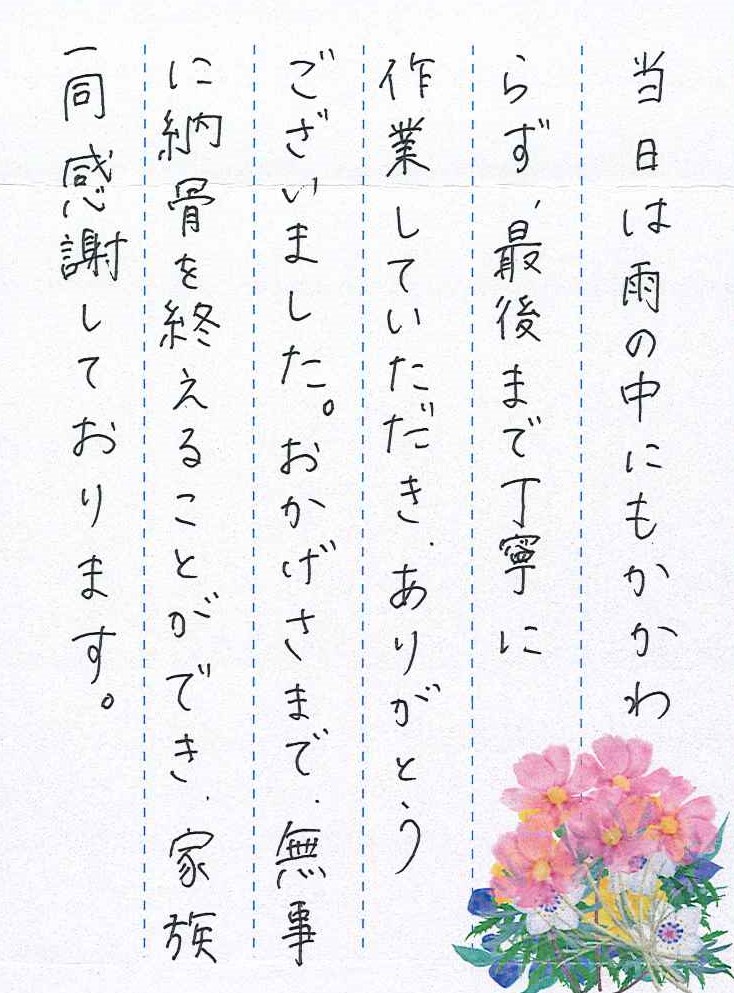 当日は雨の中にもかかわ
らず、最後まで丁寧に
作業していただき、ありがとう
ございました。おかげさまで、無事
に納骨を終えることができ、家族
一同感謝しております。